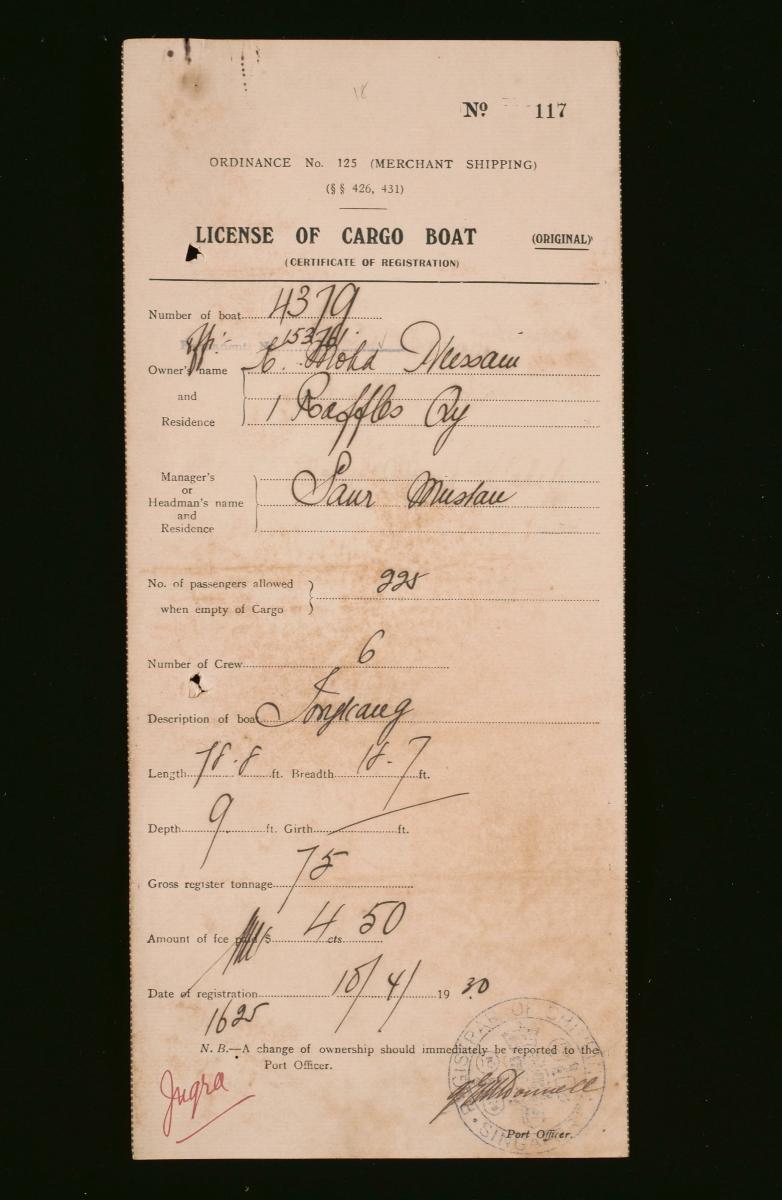 18
No 117
ORDINANCE No. 125 (MERCHANT SHIPPING)
(§ § 426, 431)
LICENSE OF CARGO BOAT (ORIGINAL)
(CERTIFICATE OF REGISTRATION)
Number of boat 4379
Owner's name Mohd Hussain
and
Residence 1 Raffles Qy
Manager's
or
Headman's name
and
Residence
No. of passengers allowed 225
when empty of Cargo
Number of Crew 6
Description of boat Tongkang
Length 78.8 ft. Breadth 18.7 ft.
Depth 9 ft. Girth ft.
Gross register tonnage 75
Amount of fee paid $ 4 cts 50
Date of registration 10/4/ 19 30
1625
N. B.—A change of ownership should immediately be reported to the
Port Officer.
Jugra
REGISTRAR OF SHIPPING
SINGAPORE
Port Officer.